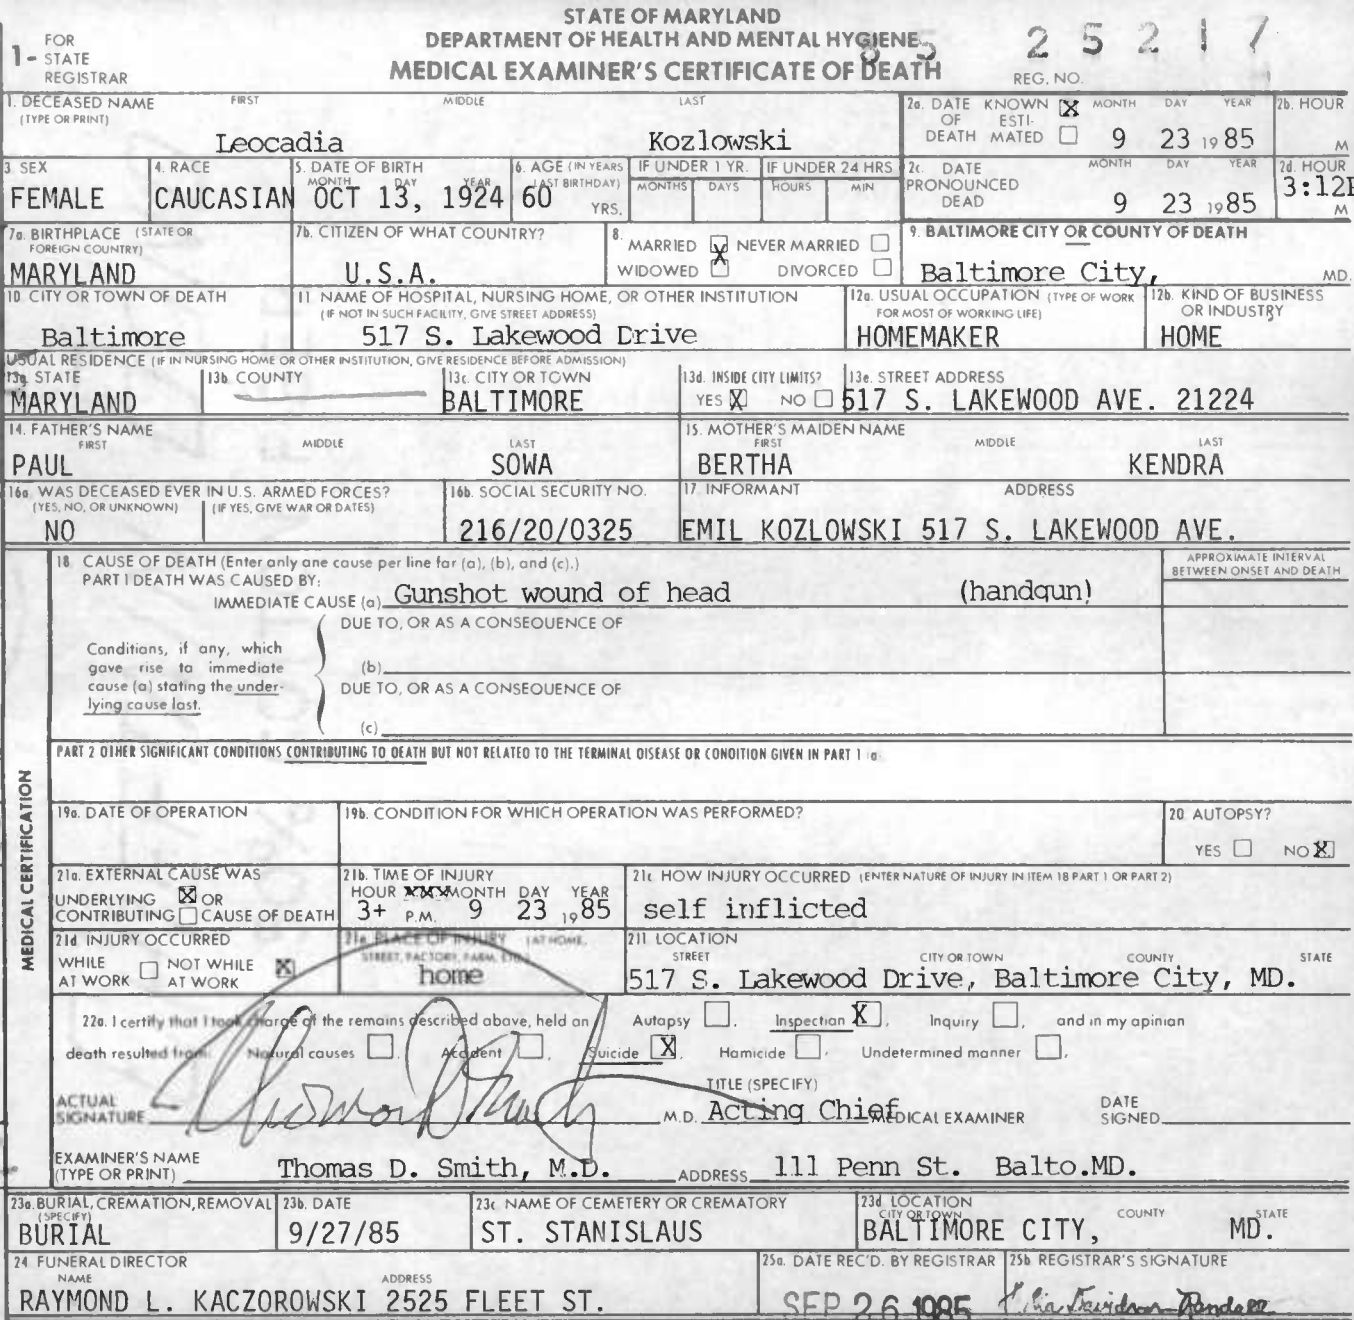 STATE OF MARYLAND
DEPARTMENT OF HEALTH AND MENTAL HYGIENE
MEDICAL EXAMINER'S CERTIFICATE OF DEATH
1- FOR STATE REGISTRAR
85 25217
REG. NO.
1. DECEASED NAME (TYPE OR PRINT) FIRST MIDDLE LAST
Leocadia Kozlowski
2a. DATE OF DEATH KNOWN X ESTIMATED MONTH DAY YEAR
9 23 1985
2b. HOUR M
3. SEX
FEMALE
4. RACE
CAUCASIAN
5. DATE OF BIRTH MONTH DAY YEAR
OCT 13, 1924
6. AGE (IN YEARS LAST BIRTHDAY)
60 YRS.
IF UNDER 1 YR. MONTHS DAYS
IF UNDER 24 HRS HOURS MIN
2c. DATE PRONOUNCED DEAD MONTH DAY YEAR
9 23 1985
2d. HOUR
3:12P M
7a. BIRTHPLACE (STATE OR FOREIGN COUNTRY)
MARYLAND
7b. CITIZEN OF WHAT COUNTRY?
U.S.A.
8. MARRIED X NEVER MARRIED
WIDOWED DIVORCED
9. BALTIMORE CITY OR COUNTY OF DEATH
Baltimore City, MD.
10 CITY OR TOWN OF DEATH
Baltimore
11 NAME OF HOSPITAL, NURSING HOME, OR OTHER INSTITUTION
(IF NOT IN SUCH FACILITY, GIVE STREET ADDRESS)
517 S. Lakewood Drive
12a. USUAL OCCUPATION (TYPE OF WORK FOR MOST OF WORKING LIFE)
HOMEMAKER
12b. KIND OF BUSINESS OR INDUSTRY
HOME
USUAL RESIDENCE (IF IN NURSING HOME OR OTHER INSTITUTION, GIVE RESIDENCE BEFORE ADMISSION)
13a. STATE
MARYLAND
13b. COUNTY
13c. CITY OR TOWN
BALTIMORE
13d. INSIDE CITY LIMITS?
YES X NO
13e. STREET ADDRESS
517 S. LAKEWOOD AVE. 21224
14. FATHER'S NAME FIRST MIDDLE LAST
PAUL SOWA
15. MOTHER'S MAIDEN NAME FIRST MIDDLE LAST
BERTHA KENDRA
16a. WAS DECEASED EVER IN U.S. ARMED FORCES?
(YES, NO, OR UNKNOWN) (IF YES, GIVE WAR OR DATES)
NO
16b. SOCIAL SECURITY NO.
216/20/0325
17. INFORMANT ADDRESS
EMIL KOZLOWSKI 517 S. LAKEWOOD AVE.
MEDICAL CERTIFICATION
18. CAUSE OF DEATH (Enter only one cause per line for (a), (b), and (c).)
PART I DEATH WAS CAUSED BY:
IMMEDIATE CAUSE (a) Gunshot wound of head (handgun)
APPROXIMATE INTERVAL BETWEEN ONSET AND DEATH
DUE TO, OR AS A CONSEQUENCE OF
Conditions, if any, which gave rise to immediate cause (a) stating the underlying cause last.
(b)
DUE TO, OR AS A CONSEQUENCE OF
(c)
PART 2 OTHER SIGNIFICANT CONDITIONS CONTRIBUTING TO DEATH BUT NOT RELATED TO THE TERMINAL DISEASE OR CONDITION GIVEN IN PART 1 (a)
19a. DATE OF OPERATION
19b. CONDITION FOR WHICH OPERATION WAS PERFORMED?
20 AUTOPSY?
YES NO X
21a. EXTERNAL CAUSE WAS
UNDERLYING X OR
CONTRIBUTING CAUSE OF DEATH
21b. TIME OF INJURY
HOUR XXX MONTH DAY YEAR
3+ P.M. 9 23 1985
21c. HOW INJURY OCCURRED (ENTER NATURE OF INJURY IN ITEM 18 PART 1 OR PART 2)
self inflicted
21d. INJURY OCCURRED
WHILE AT WORK NOT WHILE AT WORK X
21e. PLACE OF INJURY (AT HOME, STREET, FACTORY, FARM, ETC.)
home
21f. LOCATION
STREET CITY OR TOWN COUNTY STATE
517 S. Lakewood Drive, Baltimore City, MD.
22a. I certify that I took charge of the remains described above, held an Autopsy, Inspection X, Inquiry, and in my opinion
death resulted from: Natural causes, Accident, Suicide X, Homicide, Undetermined manner.
ACTUAL SIGNATURE M.D.
TITLE (SPECIFY)
Acting Chief MEDICAL EXAMINER
DATE SIGNED
EXAMINER'S NAME (TYPE OR PRINT) Thomas D. Smith, M.D. ADDRESS 111 Penn St. Balto.MD.
23a. BURIAL, CREMATION, REMOVAL (SPECIFY)
BURIAL
23b. DATE
9/27/85
23c. NAME OF CEMETERY OR CREMATORY
ST. STANISLAUS
23d. LOCATION CITY OR TOWN COUNTY STATE
BALTIMORE CITY, MD.
24 FUNERAL DIRECTOR
NAME ADDRESS
RAYMOND L. KACZOROWSKI 2525 FLEET ST.
25a. DATE REC'D. BY REGISTRAR
SEP 26 1985
25b. REGISTRAR'S SIGNATURE